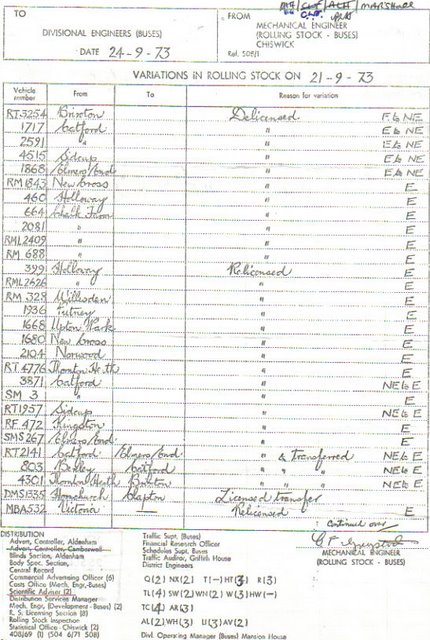 TO
DIVISIONAL ENGINEERS (BUSES)
DATE 24-9-73
FROM
MECHANICAL ENGINEER
(ROLLING STOCK - BUSES)
CHISWICK
Ref. 508/1
VARIATIONS IN ROLLING STOCK ON 21-9-73
Vehicle number From To Reason for variation
RT3254 Brixton Delicensed E to NE
1717 Catford " E to NE
2591 " " E to NE
4515 Sidcup " E to NE
1868 Elmers End " E to NE
RM 1843 New Cross " E
460 Holloway " E
664 Chalk Farm " E
2081 " " E
RML2409 " " E
RM 688 " " E
399 Holloway Relicensed E
RML2626 " " E
RM 328 Willesden " E
1936 Putney " E
1668 Upton Park " E
1680 New Cross " E
2104 Norwood " E
RT 4776 Thornton Heath " E
3871 Catford " NE to E
SM 3 " " E
RT1957 Sidcup " NE to E
RF 472 Kingston " E
SMS 267 Elmers End " E
RT2141 Catford Elmers End " & transferred NE to E
803 Bexley Catford " " " NE to E
4301 Thornton Heath Brixton " " " NE to E
DMS1335 Hornchurch Clapton Licensed transfer
MBA532 Victoria Relicensed E
Continued over
MECHANICAL ENGINEER
(ROLLING STOCK - BUSES)
DISTRIBUTION
Advert. Controller, Aldenham
Advert. Controller, Camberwell
Divisional Section, Aldenham
Body Spec. Section,
Central Record
Commercial Advertising Officer (6)
Costs Office (Mech. Engr.-Buses)
Scientific Adviser (2)
Distribution Services Manager
Mech. Engr. (Development - Buses) (2)
R. S. Licensing Section (8)
Rolling Stock Inspection
Statistical Office - Chiswick (2)
Traffic Supt. (Buses)
Financial Research Officer
Schedules Supt. Buses
Traffic Auditor, Griffith House
District Engineers
Q(2) NX(2) T(-) HT(3) R(3)
TL(4) SW(2) WN(2) W(3) HW(-)
TC(4) AR(3)
AL(2) WH(3) U(3) AV(2)
Divl. Operating Manager (Buses) Mansion House